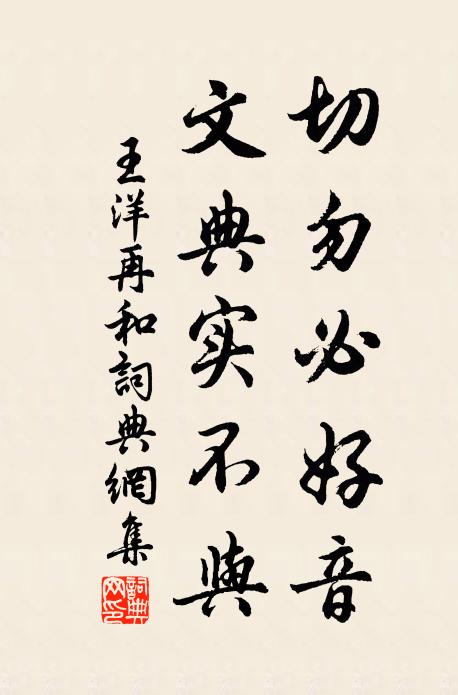 切勿必好音
文典实不與
王洋再和詞典網集
詞典网印